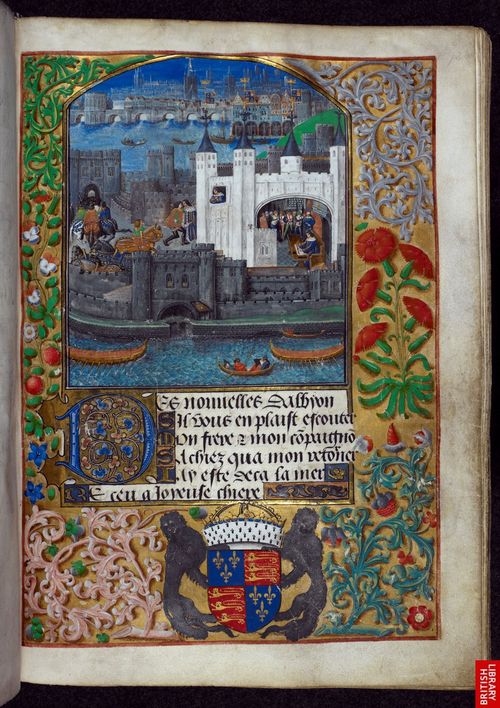 Des nouvelles dalbyon
Sil vous en plaist escouter
Mon frere & mon cõpaignõ
Sachiez qua mon retorner
Jay este deca la mer
Receu a Joyeuse chiere
BRITISH
LIBRARY